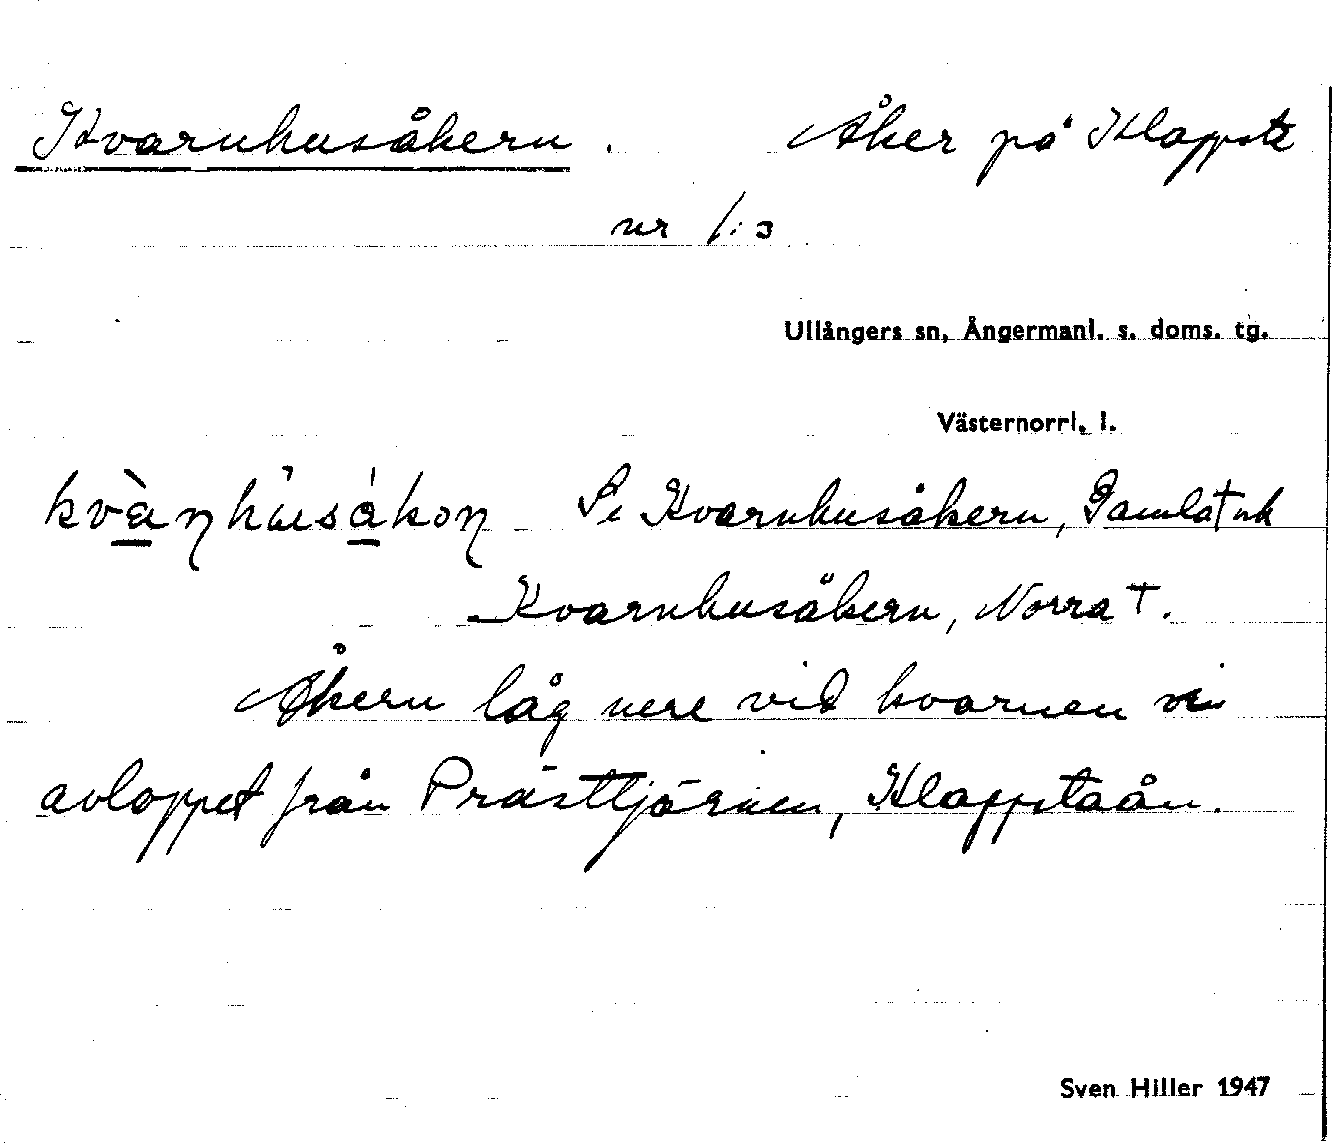 Kvarnhusåkern. Åker på Klappsta
nr 1:3
Ullångers sn, Ångermanl. s. doms. tg.
Västernorrl. l.
kvàṇhu̇sákoṇ Se Kvarnhusåkern, Gamla † och
Kvarnhusåkern, Norra †.
Åkern låg nere vid kvarnen vid
avloppet från Prästtjärnen, Klappstaån.
Sven Hiller 1947